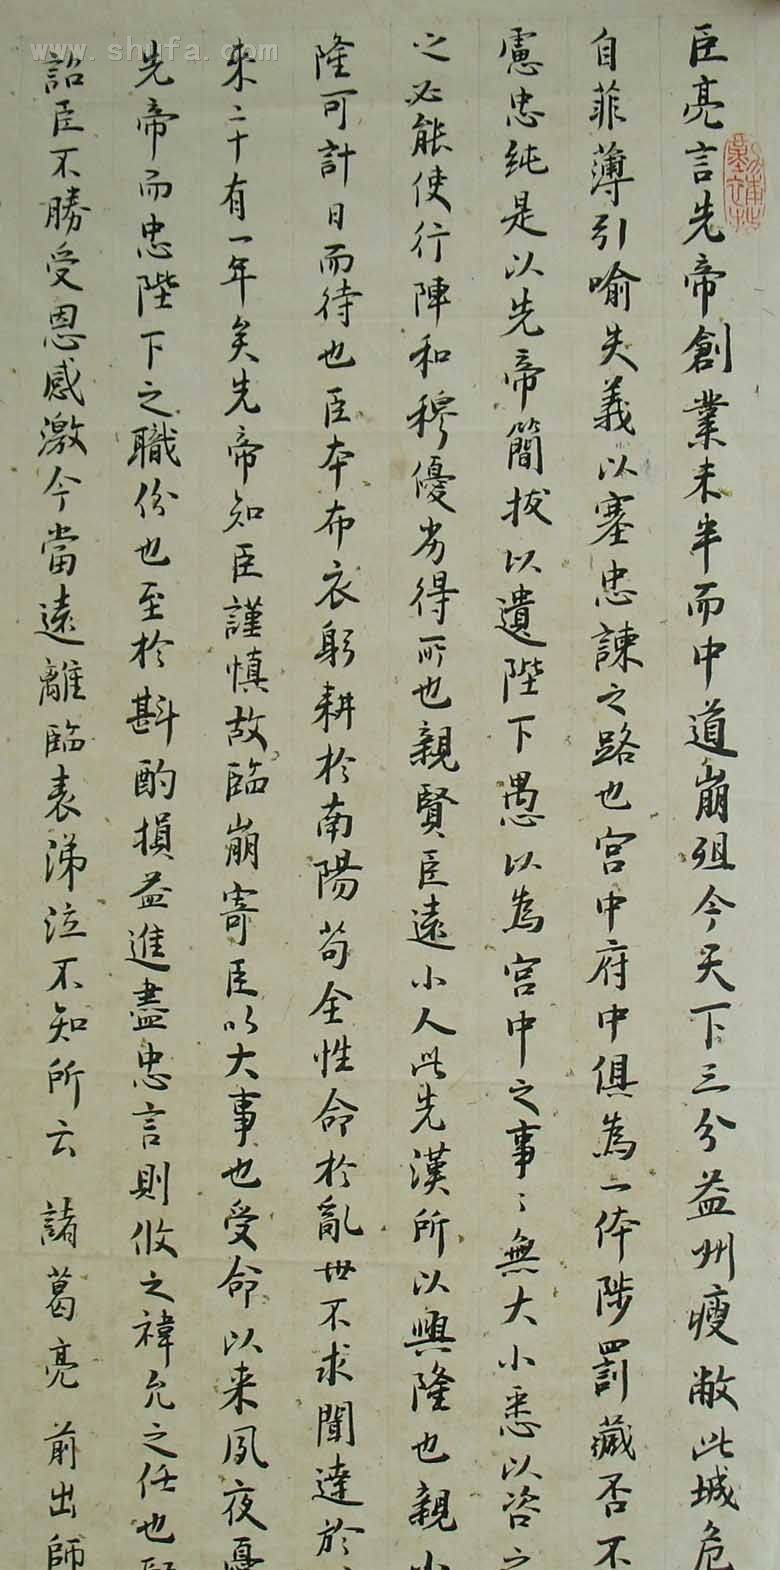 臣亮言先帝創業未半而中道崩殂今天下三分益州瘦敝此城危
自菲薄引喻失義以塞忠諫之路也宮中府中俱為一体陟罰臧否不
慮忠純是以先帝簡拔以遺陛下愚以為宮中之事〻無大小悉以咨之
之必能使行陣和穆優劣得所也親賢臣遠小人此先漢所以興隆也親小
隆可計日而待也臣本布衣躬耕於南陽苟全性命於亂世不求聞達於
來二十有一年矣先帝知臣謹慎故臨崩寄臣以大事也受命以来夙夜憂
先帝而忠陛下之職份也至於斟酌損益進盡忠言則攸之禕允之任也
詔臣不勝受恩感激今當遠離臨表涕泣不知所云 諸葛亮 前出師
www.shufa.com